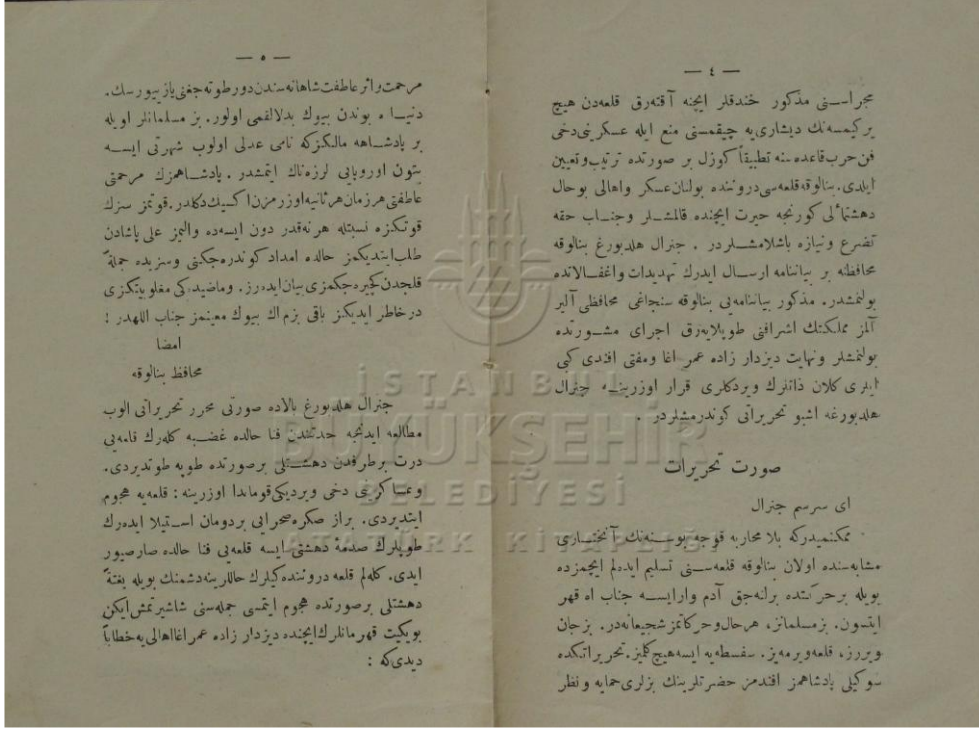 — ٤ —
مجراسنی مذكور خندقلر ایچنه آقته‌رق قلعه‌دن هیچ
بر كیمسه‌نك دیشاری‌یه چیقمسنی منع ایله عسكرینی دخی
فن حرب قاعده‌سنه تطبیقاً كوزل بر صورتده ترتیب وتعیین
ایلدی. بنالوقه قلعه‌سی دروننده بولنان عسكر واهالی بوحال
دهشتمآلی كورنجه حیرت ایچنده قالمشلر وجناب حقه
تضرع ونیازه باشلامشلردر . جنرال هلدبورغ بنالوقه
محافظنه بر بیاننامه ارسال ایدرك تهدیدات واغفالاتده
بولنمشدر. مذكور بیاننامه‌یی بنالوقه سنجاغی محافظی آلیر
آلمز مملكتك اشرافنی طوپلایه‌رق اجرای مشورتده
بولنمشلر ونهایت دیزدار زاده عمر اغا ومفتی افندی كبی
ایلری كلان ذاتلرك ویردكلری قرار اوزرینه جنرال
هلدبورغه اشبو تحریراتی كوندرمشلردر .
صورت تحریرات
ای سرسم جنرال
ممكنمیدركه بلا محاربه قوجه بوسنه‌نك آنختاری
مثابه‌سنده اولان بنالوقه قلعه‌سنی تسلیم ایده‌لم ایچمزده
بویله بر حركتده بولنه‌جق آدم وارایسه جناب الله قهر
ایتسون. بز مسلمانز، هرحال وحركاتمز شجیعانه‌در. بز جان
ویررز، قلعه ویرمه‌یز. سفسطه‌یه ایسه هیچ كلمیز. تحریراتكده
سوكیلی پادشاهمز افندمز حضرتلرینك بزلری حمایه ونظر
— ٥ —
مرحمت واثر عاطفت شاهانه‌سندن دور طوته‌جغنی یازییورسك.
دنیاده بوندن بیوك بدلالقمی اولور. بز مسلمانلر اویله
بر پادشاهه مالكزكه نامی عدلی اولوب شهرتی ایسه
بتون اوروپایی لرزه‌ناك ایتمشدر . پادشاهمزك مرحمتی
عاطفتی هر زمان هر ثانیه اوزرمزدن اكسیك دكلدر. قوتمز سزك
قوتكزه نسبتله هر نه‌قدر دون ایسه‌ده والیمز علی پاشادن
طلب ایتدیكمز حالده امداد كوندره‌جكنی وسزیده جملةً
قلجدن كچیره‌جكمزی بیان ایده‌رز. وماضیده‌كی مغلوبیتكزی
درخاطر ایدیكز باقی بزم اك بیوك معینمز جناب اللهدر !
امضا
محافظ بنالوقه
جنرال هلدبورغ بالاده صورتی محرر تحریراتی الوب
مطالعه ایدنجه حدتندن فنا حالده غضبه كله‌رك قلعه‌یی
درت بر طرفدن دهشتلی بر صورتده طوپه طوتدیردی.
وعساكرینی دخی ویردیكی قوماندا اوزرینه : قلعه‌یه هجوم
ایتدیردی. براز صكره صحرایی بر دومان استیلا ایده‌رك
طوپلرك صدمهٔ دهشتی ایسه قلعه‌یی فنا حالده صارصیور
ایدی. كله‌لم قلعه دروننده‌كیلرك حاللرینه دشمنك بویله بغتةً
دهشتلی بر صورتده هجوم ایتمسی جمله‌سنی شاشیرتمش ایكن
بو یكیت قهرمانلرك ایچنده دیزدار زاده عمر اغا اهالی‌یه خطاباً
دیدی‌كه :
İSTANBUL
BÜYÜKŞEHİR
BELEDİYESİ
ATATÜRK KİTAPLIĞI